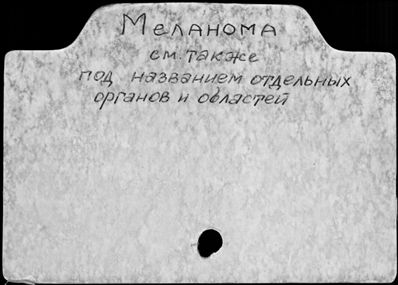 Меланома
см. также
под названием отдельных
органов и областей